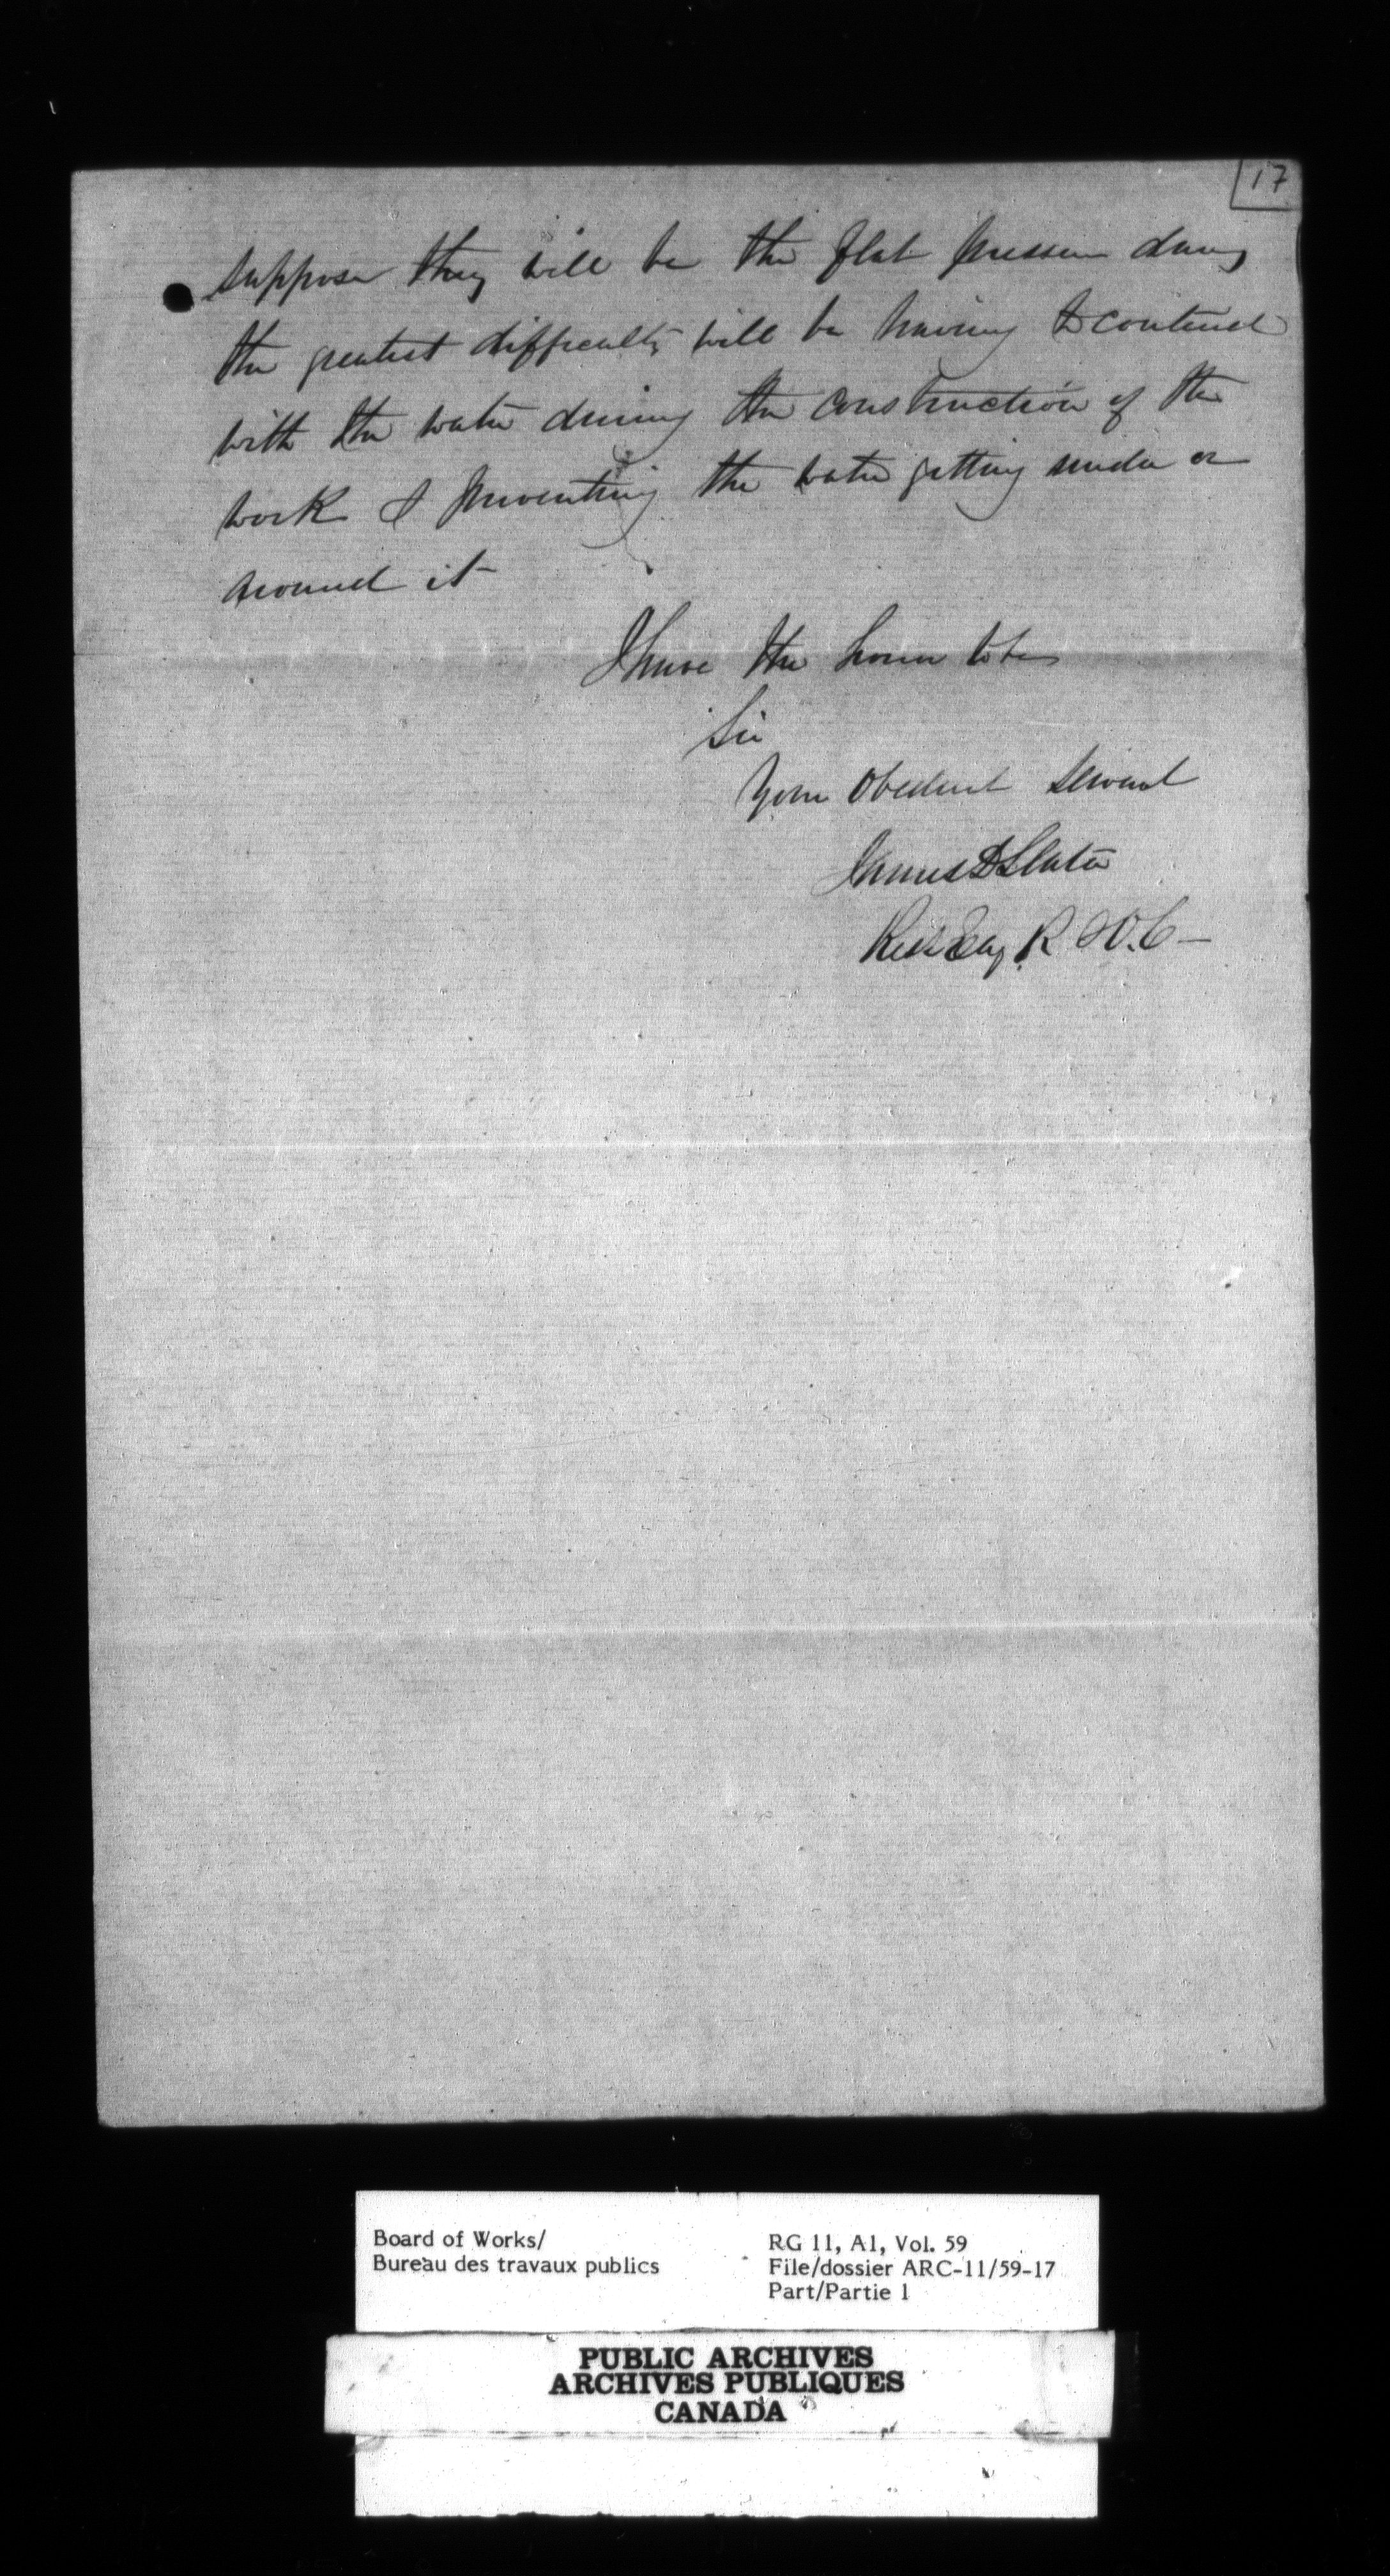 17
suppose they will be the flat pressure dams
the greatest difficulty will be having to contend
with the water during the construction of the
work & preventing the water getting under or
around it
I have the honor to be
Sir
Your Obedient Servant
James D Slater
Resdt Eng. R & O. C -
Board of Works/
Bureau des travaux publics
RG 11, A1, Vol. 59
File/dossier ARC-11/59-17
Part/Partie 1
PUBLIC ARCHIVES
ARCHIVES PUBLIQUES
CANADA